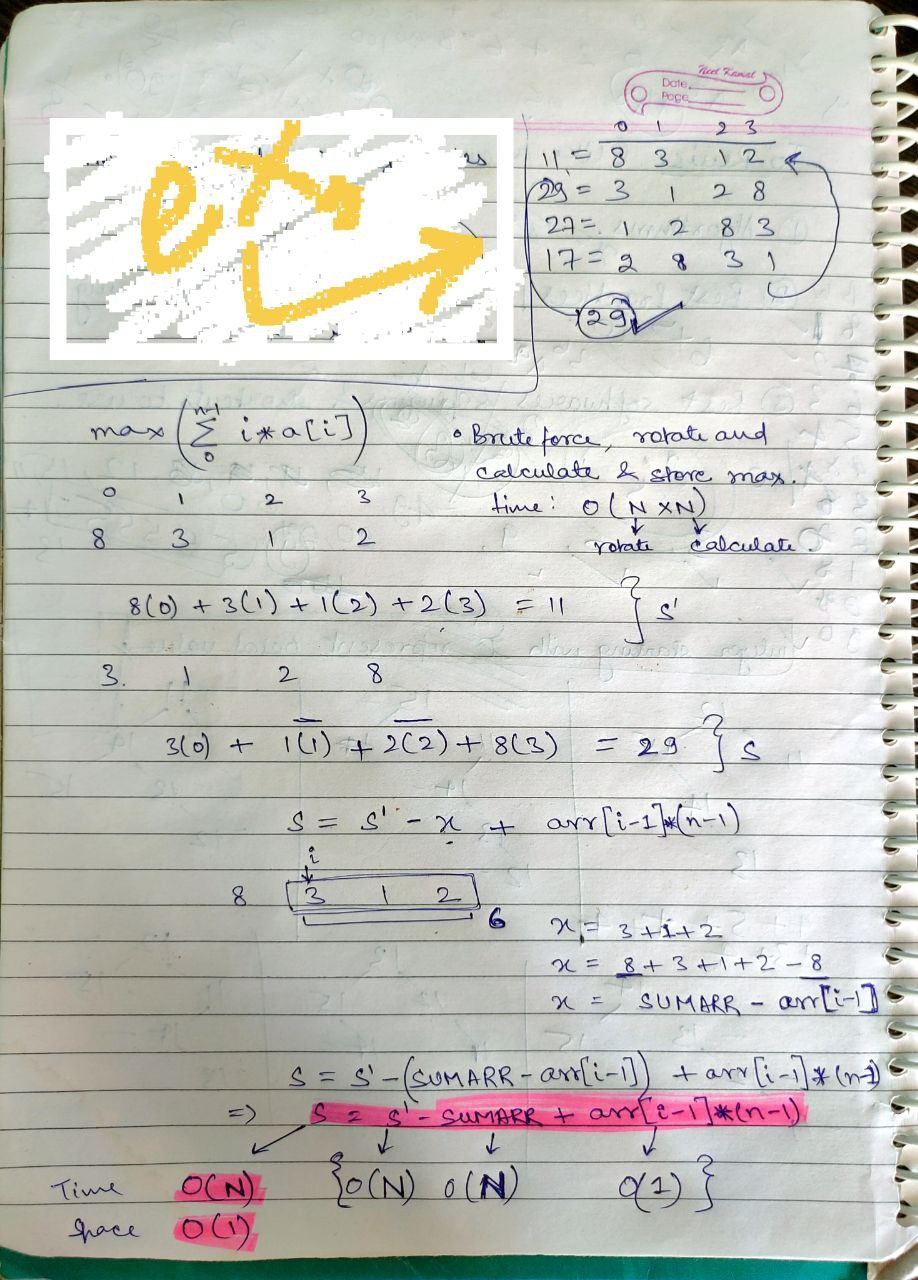 Neel Kamal
Date
Page
ext
0 1 2 3
11 = 8 3 1 2
29 = 3 1 2 8
27 = 1 2 8 3
17 = 2 8 3 1
29
max ( n-1 Σ 0 i * a[i] )
• Brute force, rotate and
calculate & store max.
time: O(N x N)
rotate calculate.
0 1 2 3
8 3 1 2
8(0) + 3(1) + 1(2) + 2(3) = 11 } s'
3. 1 2 8
3(0) + 1(1) + 2(2) + 8(3) = 29 } s
s = s' - x + arr[i-1]*(n-1)
i
8 3 1 2
6
x = 3+1+2
x = 8+3+1+2-8
x = SUMARR - arr[i-1]
s = s' - (SUMARR - arr[i-1]) + arr[i-1]*(n-1)
=> s = s' - SUMARR + arr[i-1]*(n-1)
Time O(N) { O(N) O(N) O(1) }
Space O(1)